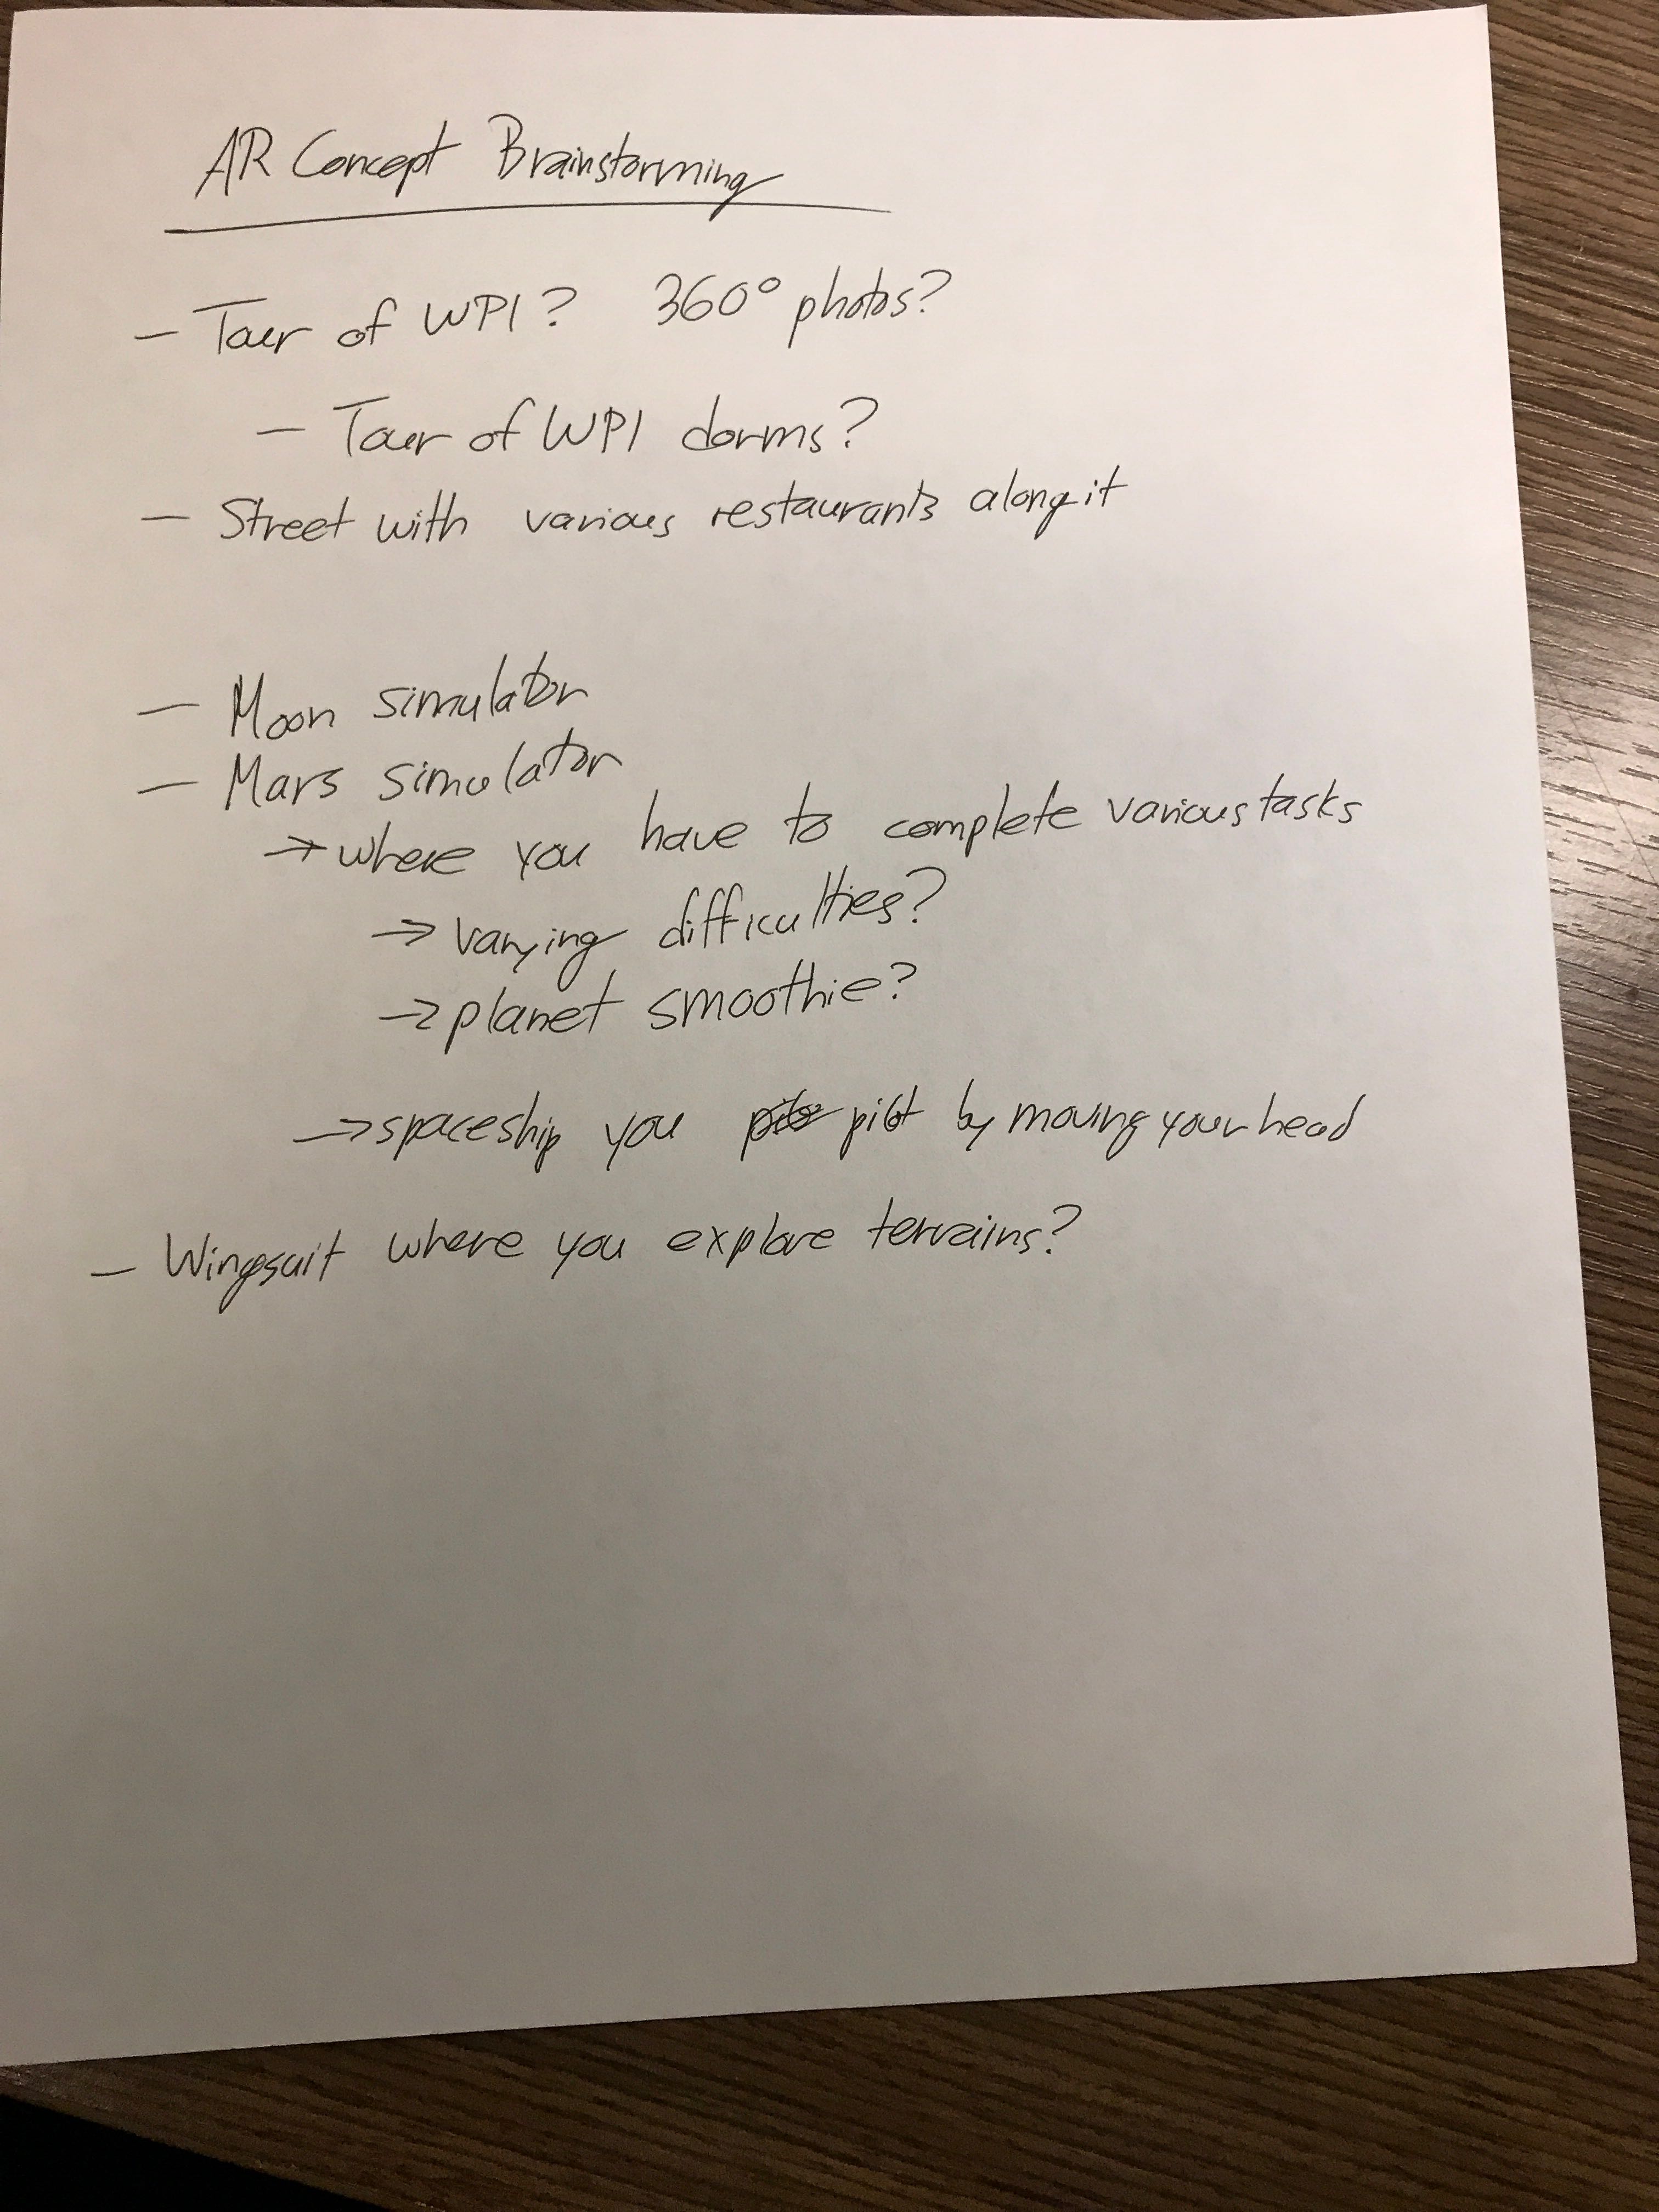 AR Concept Brainstorming
- Tour of WPI? 360° photos?
- Tour of WPI dorms?
- Street with various restaurants along it
- Moon simulator
- Mars simulator
→ where you have to complete various tasks
→ varying difficulties?
→ planet smoothie?
→ spaceship you pilot by moving your head
- Wingsuit where you explore terrains?